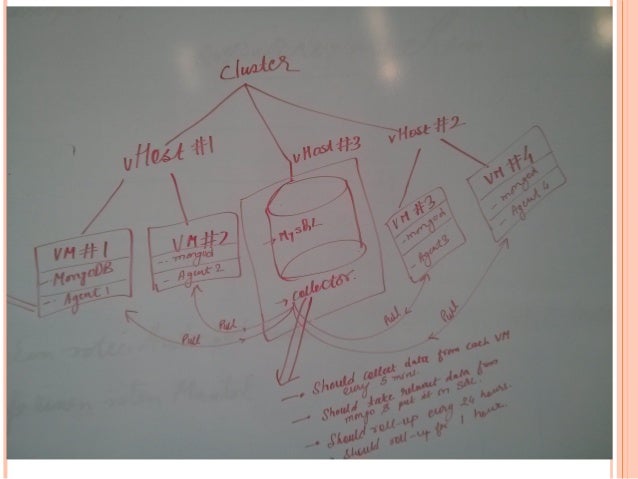 Cluster
vHost #1
vHost #3
vHost #2
VM #1
MongoDB
- Agent 1
VM #2
- mongod
- Agent 2
→ MySQL
→ collector.
VM #3
- mongod
- Agent 3
VM #4
- mongod
- Agent 4
Pull
Pull
Pull
Pull
→ Should collect data from each VM
every 5 mins.
→ Should take relevant data from
mongo & put it in SQL.
→ Should roll-up every 24 hours.
→ Should roll-up for 1 hour.